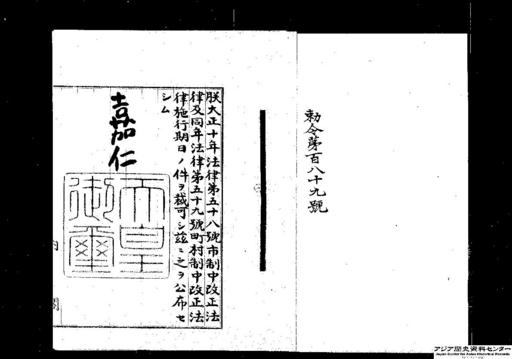 勅令第百八十九號
朕大正十年法律第五十八號市制中改正法
律及同年法律第五十九號町村制中改正法
律施行期日ノ件ヲ裁可シ茲ニ之ヲ公布セ
シム
嘉仁
天皇
御璽
アジア歴史資料センター
Japan Center for Asian Historical Records